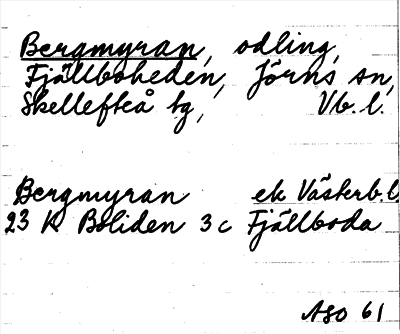 Bergmyran, odling,
Fjällboheden, Jörns sn,
Skellefteå tg, Vb.l.
Bergmyran ek Västerb.l.
23 K Boliden 3c Fjällboda
ASO 61